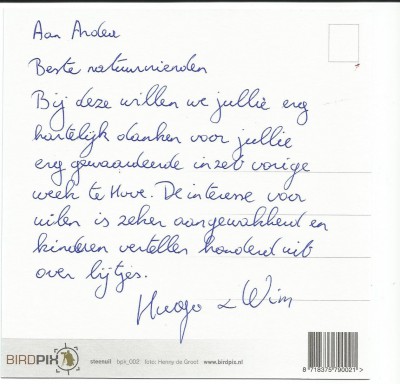 Aan Ardea
Beste natuurvrienden
Bij deze willen we jullie erg
hartelijk danken voor jullie
erg gewaardeerde inzet vorige
week te Hove. De interesse voor
uilen is zeker aangewakkerd en
kinderen vertellen honderduit
over lijtjes.
Hugo & Wim
BIRDPIX steenuil bpk_002 foto: Henny de Groot www.birdpix.nl
8 718375 790021 >